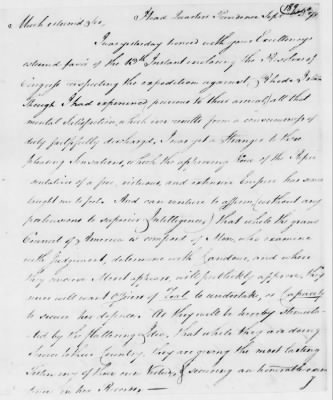 189
Much esteemed Sir,
Head Quarters Providence Sept
I was yesterday honored with your Excellency's
esteemed favor of the 13th Instant inclosing the Resolves of
Congress respecting the expedition against Rhode Island
Though I had experienced, previous to their arrival, all that
mental Satisfaction, which can result from a consciousness of
duty faithfully discharged, I was yet a Stranger to those
pleasing Sensations, which the approving Voice of the Repre
sentatives of a free, virtuous, and extensive Empire has since
taught me to feel. And can venture to affirm (without any
pretensions to superior Intelligence) That while the grand
Council of America is composed of Men, who examine
with Judgement, determine with Candour, and where
they know Merit appears, will publickly approve, They
never will want Officers of Zeal to undertake, or Capacity
to secure her defence. As they will be thereby stimula
ted by the flattering Idea, That while they are doing
their Country, they are giving the most lasting
Testimony of their own Virtue, & securing an honorable
in her Records —